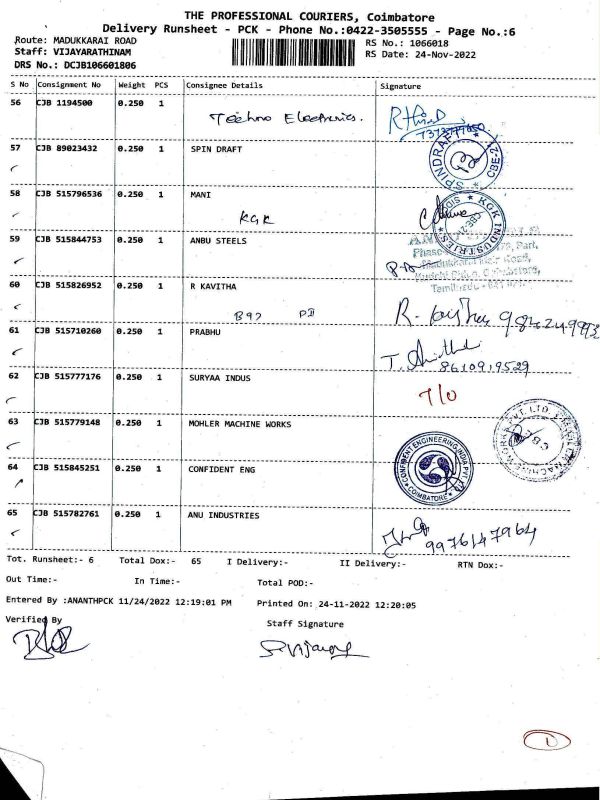 THE PROFESSIONAL COURIERS, Coimbatore
Delivery Runsheet - PCK - Phone No.:0422-3505555 - Page No.:6
Route: MADUKKARAI ROAD
RS No.: 1066018
Staff: VIJAYARATHINAM
RS Date: 24-Nov-2022
DRS No.: DCJB106601806
S No Consignment No Weight PCS Consignee Details Signature
56 CJB 1194500 0.250 1
Techno Electronics.
57 CJB 89023432 0.250 1 SPIN DRAFT
SPINDRAFT CBE-2
58 CJB 515796536 0.250 1 MANI
KGK
KGK INDUSTRIES
59 CJB 515844753 0.250 1 ANBU STEELS
60 CJB 515826952 0.250 1 R KAVITHA
B92 PD
61 CJB 515710260 0.250 1 PRABHU
8610919529
62 CJB 515777176 0.250 1 SURYAA INDUS
T/O
63 CJB 515779148 0.250 1 MOHLER MACHINE WORKS
64 CJB 515845251 0.250 1 CONFIDENT ENG
CONFIDENT ENGINEERING INDIA PVT. COIMBATORE
65 CJB 515782761 0.250 1 ANU INDUSTRIES
9976147964
Tot. Runsheet:- 6 Total Dox:- 65 I Delivery:- II Delivery:- RTN Dox:-
Out Time:- In Time:- Total POD:-
Entered By :ANANTHPCK 11/24/2022 12:19:01 PM Printed On: 24-11-2022 12:20:05
Verified By Staff Signature